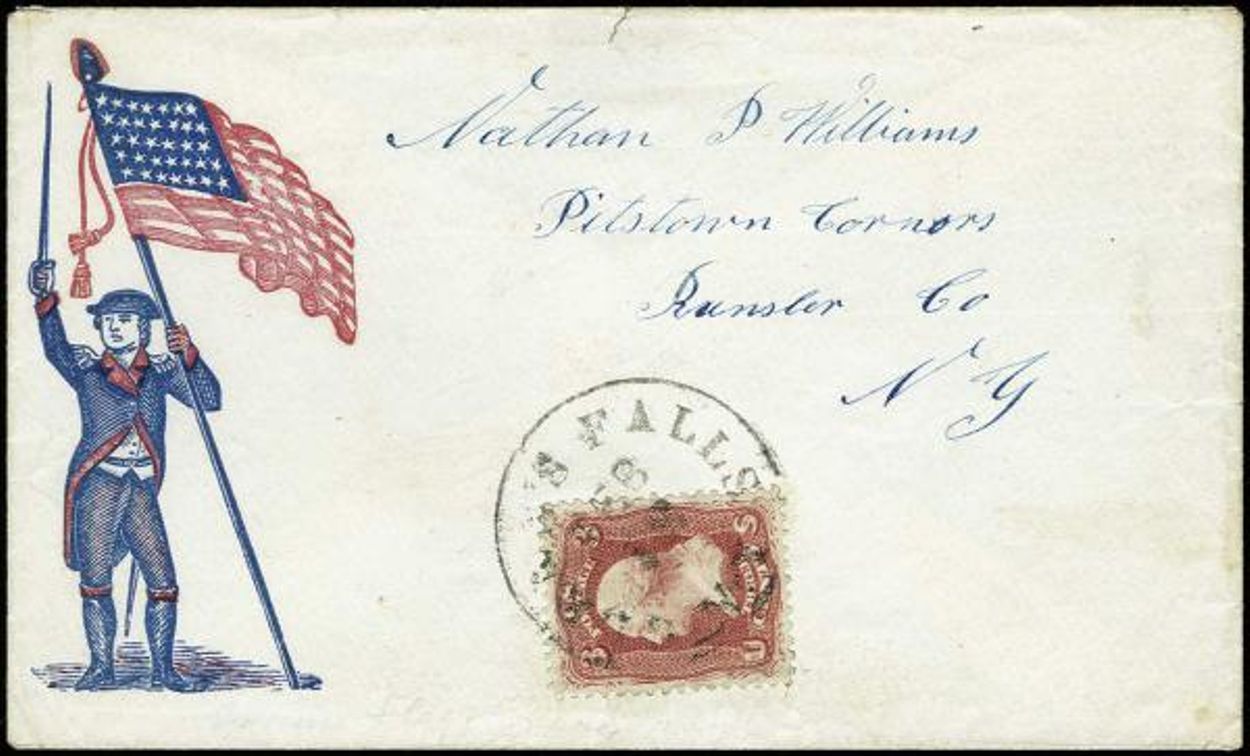 Nathan P Williams
Pitstown Cornors
Runsler Co
N Y
FALLS
3 3
U S